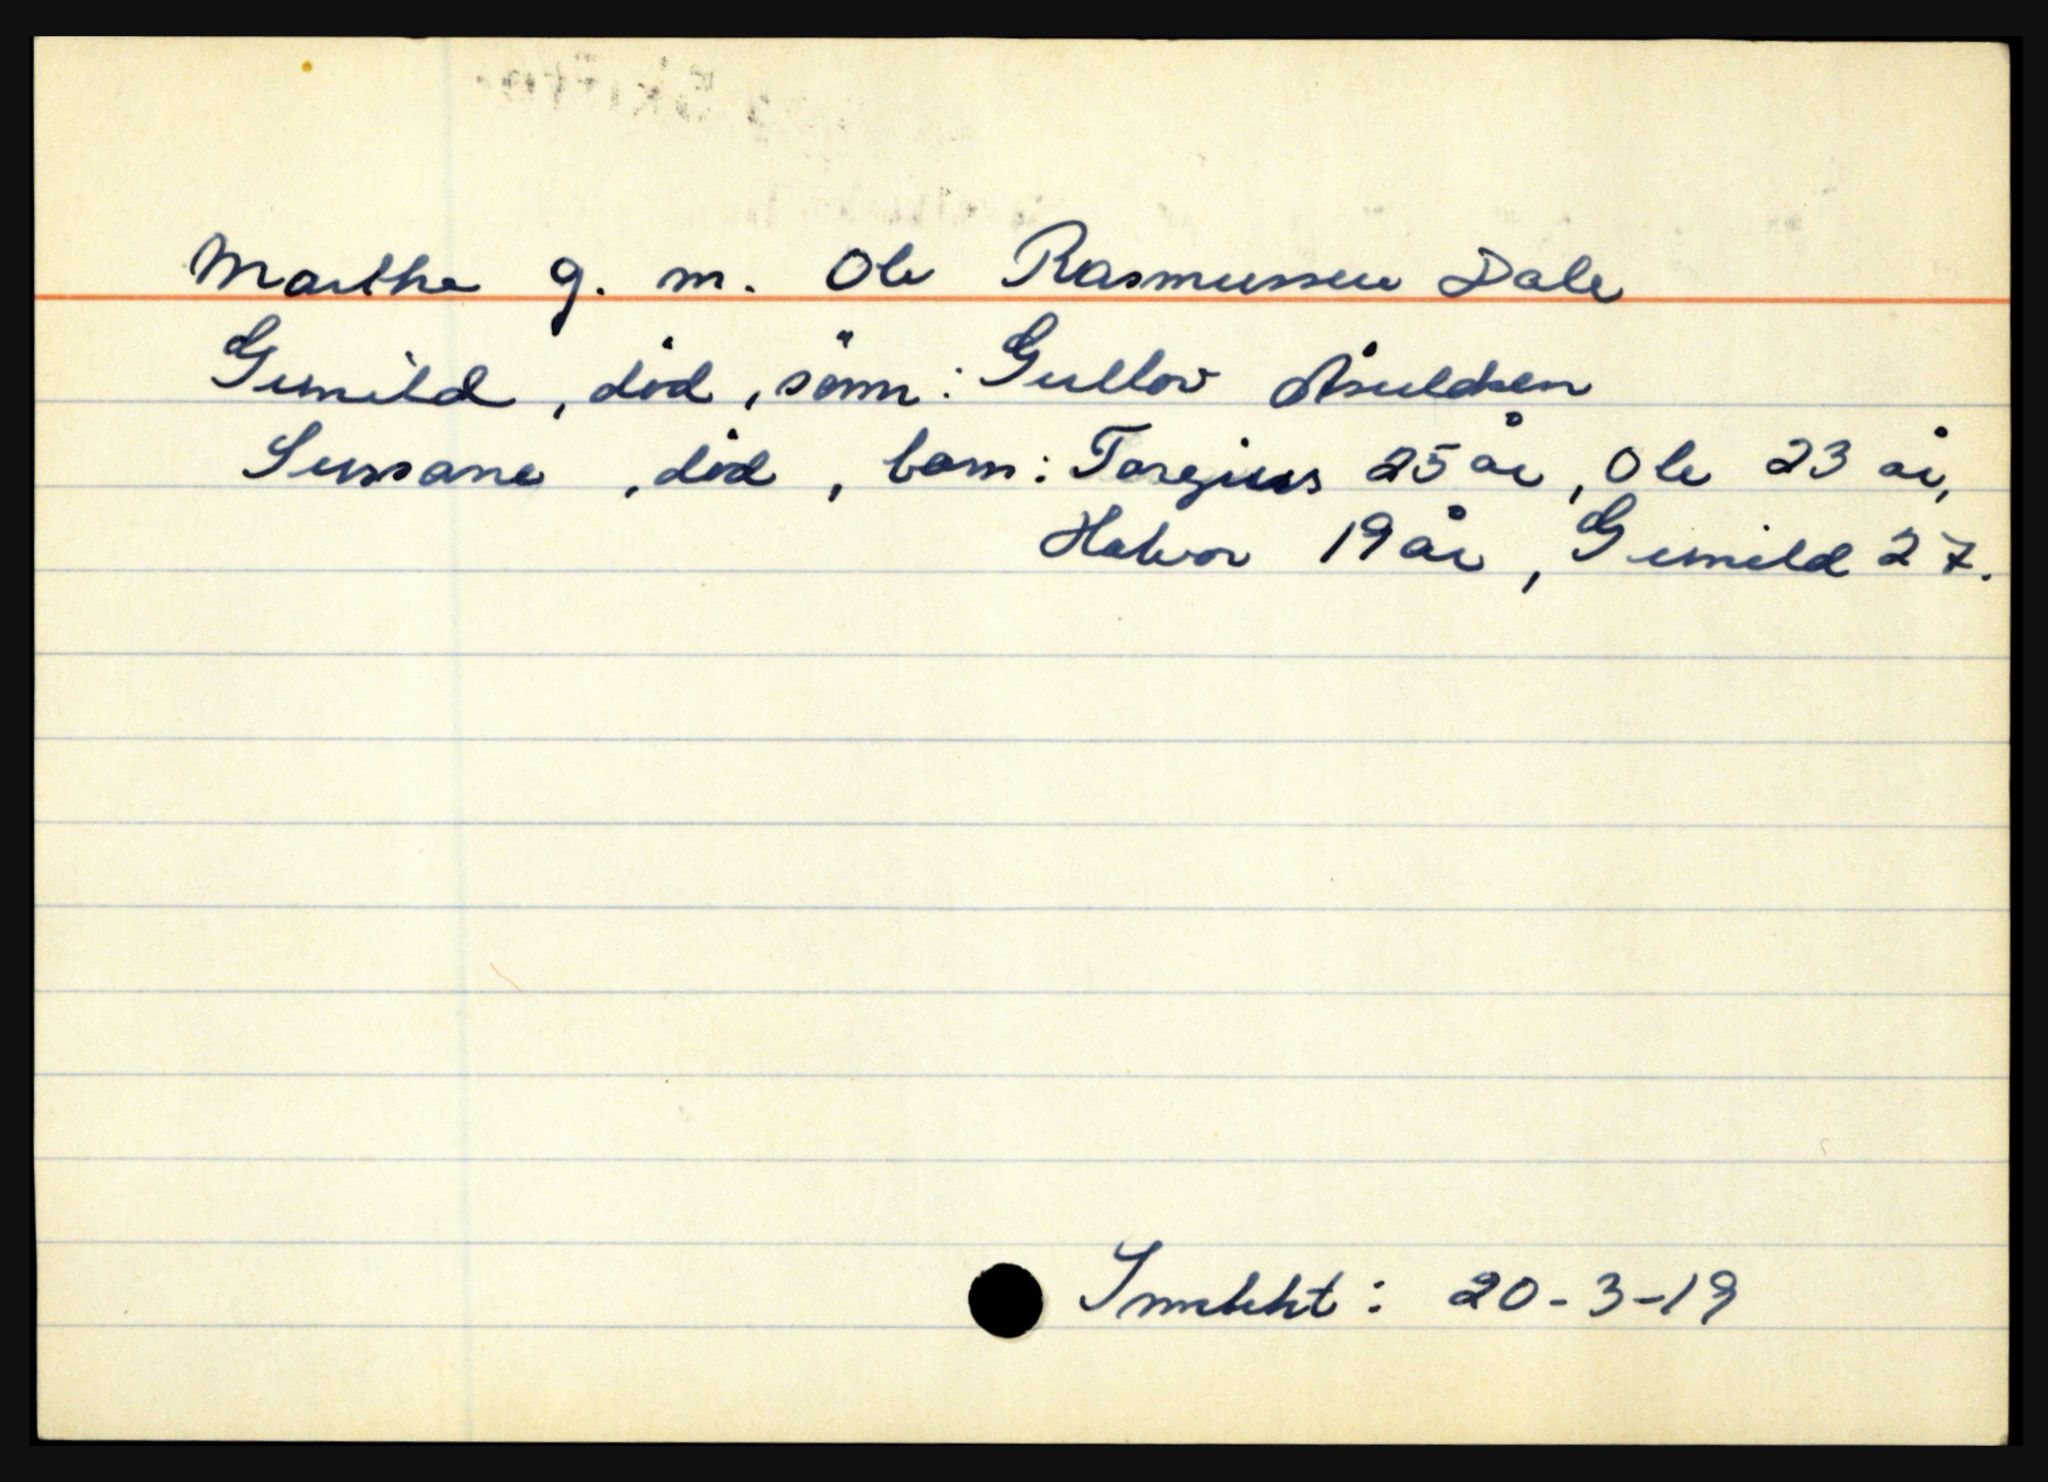 Marthe g. m. Ole Rasmussen Dale
Gunild, död, sönn: Gullov Åsuldsen
Sussane, död, barn: Targius 25 år, Ole 23 år,
Halvor 19 år, Gunild 27.
Innebkt: 20-3-19